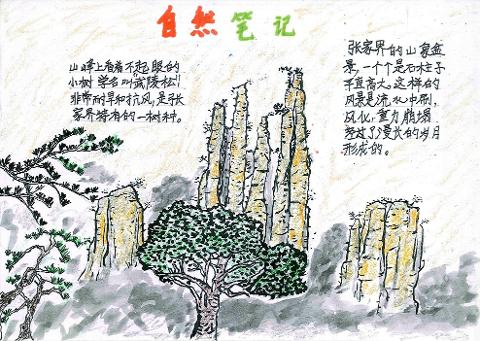 自然笔记
山峰上看着不起眼的
小树学名叫"武陵松"
非常耐旱和抗风,是张
家界特有的一树种。
张家界的山盆
景,一个个是石柱子
直高大。这样的
风景是流水冲刷,
风化,重力崩塌
经过了漫长的岁月
形成的。